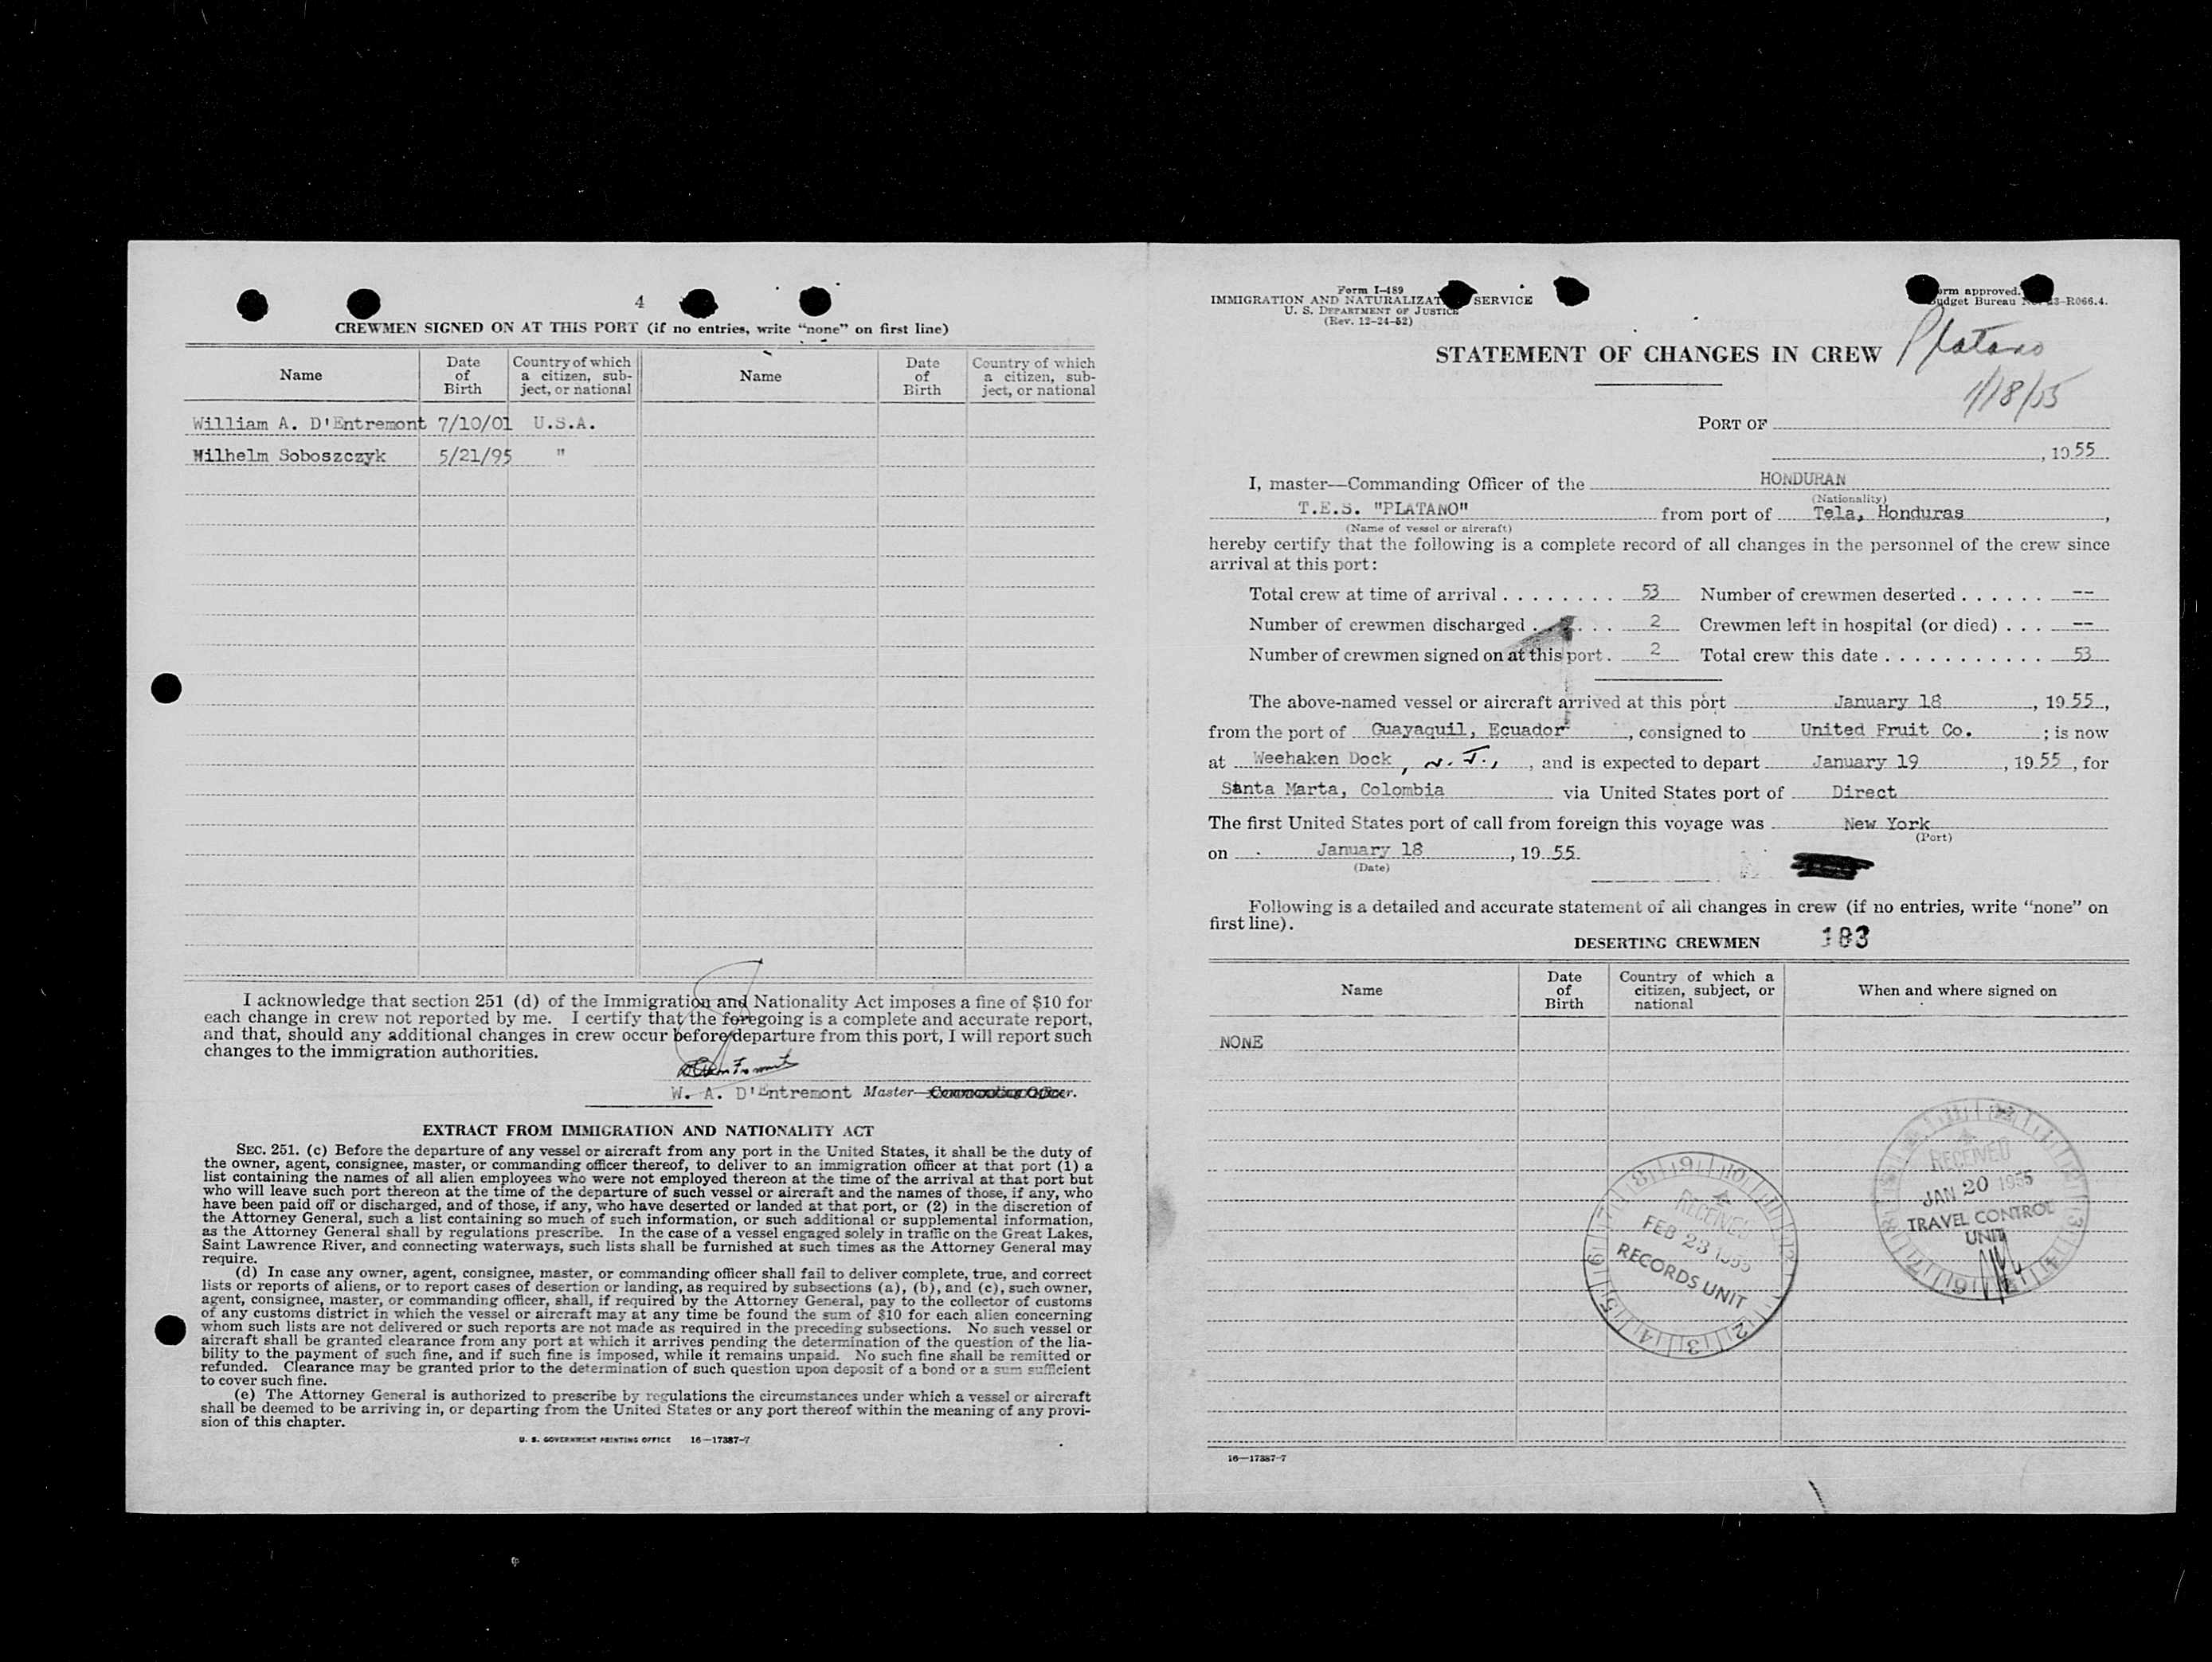 4
CREWMEN SIGNED ON AT THIS PORT (if no entries, write "none" on first line)
Name
Date of Birth
Country of which a citizen, subject, or national
Name
Date of Birth
Country of which a citizen, subject, or national
William A. D'Entremont 7/10/01 U.S.A.
Wilhelm Soboszczyk 5/21/95 "
I acknowledge that section 251 (d) of the Immigration and Nationality Act imposes a fine of $10 for
each change in crew not reported by me. I certify that the foregoing is a complete and accurate report,
and that, should any additional changes in crew occur before departure from this port, I will report such
changes to the immigration authorities.
W. A. D'Entremont Master—Commanding Officer.
EXTRACT FROM IMMIGRATION AND NATIONALITY ACT
SEC. 251. (c) Before the departure of any vessel or aircraft from any port in the United States, it shall be the duty of
the owner, agent, consignee, master, or commanding officer thereof, to deliver to an immigration officer at that port (1) a
list containing the names of all alien employees who were not employed thereon at the time of the arrival at that port but
who will leave such port thereon at the time of the departure of such vessel or aircraft and the names of those, if any, who
have been paid off or discharged, and of those, if any, who have deserted or landed at that port, or (2) in the discretion of
the Attorney General, such a list containing so much of such information, or such additional or supplemental information,
as the Attorney General shall by regulations prescribe. In the case of a vessel engaged solely in traffic on the Great Lakes,
Saint Lawrence River, and connecting waterways, such lists shall be furnished at such times as the Attorney General may
require.
(d) In case any owner, agent, consignee, master, or commanding officer shall fail to deliver complete, true, and correct
lists or reports of aliens, or to report cases of desertion or landing, as required by subsections (a), (b), and (c), such owner,
agent, consignee, master, or commanding officer, shall, if required by the Attorney General, pay to the collector of customs
of any customs district in which the vessel or aircraft may at any time be found the sum of $10 for each alien concerning
whom such lists are not delivered or such reports are not made as required in the preceding subsections. No such vessel or
aircraft shall be granted clearance from any port at which it arrives pending the determination of the question of the lia-
bility to the payment of such fine, and if such fine is imposed, while it remains unpaid. No such fine shall be remitted or
refunded. Clearance may be granted prior to the determination of such question upon deposit of a bond or a sum sufficient
to cover such fine.
(e) The Attorney General is authorized to prescribe by regulations the circumstances under which a vessel or aircraft
shall be deemed to be arriving in, or departing from the United States or any port thereof within the meaning of any provi-
sion of this chapter.
U. S. GOVERNMENT PRINTING OFFICE 16—17387-7
Form I-489
IMMIGRATION AND NATURALIZAT SERVICE
U. S. DEPARTMENT OF JUSTICE
(Rev. 12-24-52)
orm approved.
udget Bureau N 43-R066.4.
STATEMENT OF CHANGES IN CREW
Platano
1/18/55
PORT OF
, 1955
I, master—Commanding Officer of the HONDURAN
(Nationality)
T.E.S. "PLATANO" from port of Tela, Honduras,
(Name of vessel or aircraft)
hereby certify that the following is a complete record of all changes in the personnel of the crew since
arrival at this port:
Total crew at time of arrival . . . . . . . . 53 Number of crewmen deserted . . . . . . --
Number of crewmen discharged . . . . . . 2 Crewmen left in hospital (or died) . . . --
Number of crewmen signed on at this port . 2 Total crew this date . . . . . . . . . . . 53
The above-named vessel or aircraft arrived at this port January 18, 1955,
from the port of Guayaquil, Ecuador, consigned to United Fruit Co. ; is now
at Weehaken Dock, N. J., , and is expected to depart January 19, 1955, for
Santa Marta, Colombia via United States port of Direct
The first United States port of call from foreign this voyage was New York
(Port)
on January 18, 1955
(Date)
Following is a detailed and accurate statement of all changes in crew (if no entries, write "none" on
first line).
DESERTING CREWMEN 183
Name
Date of Birth
Country of which a citizen, subject, or national
When and where signed on
NONE
RECEIVED
JAN 20 1955
TRAVEL CONTROL
UNIT
RECEIVED
FEB 23 1955
RECORDS UNIT
16—17387-7